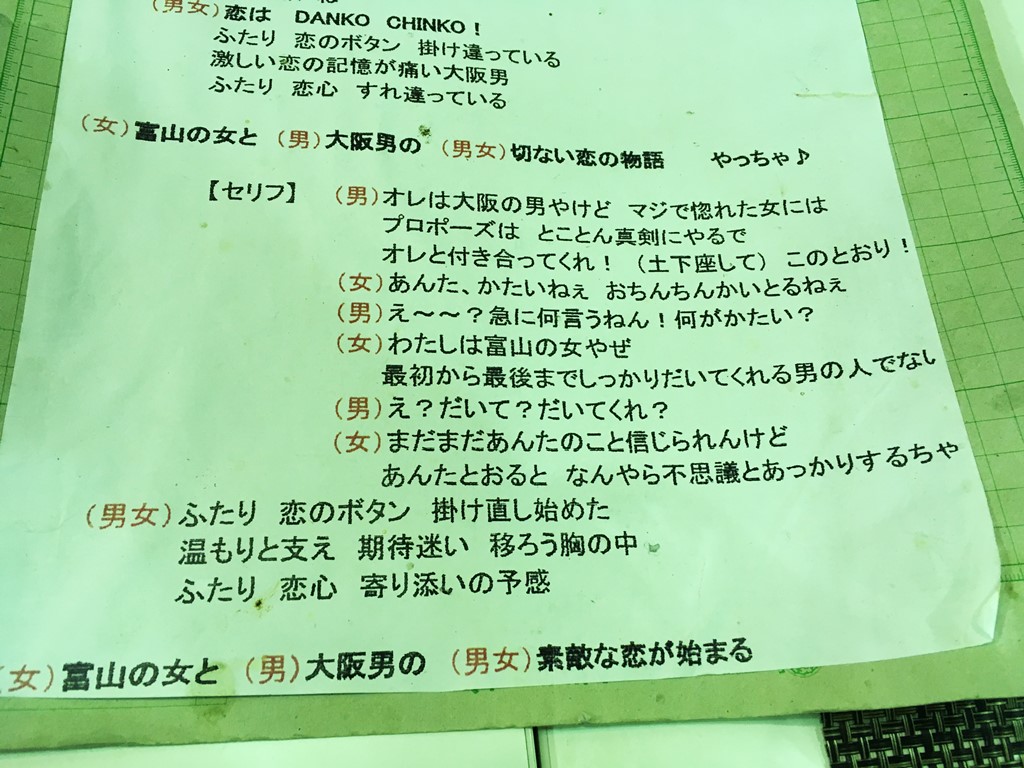 (男女)恋は DANKO CHINKO!
ふたり 恋のボタン 掛け違っている
激しい恋の記憶が痛い大阪男
ふたり 恋心 すれ違っている
(女)富山の女と (男)大阪男の (男女)切ない恋の物語 やっちゃ♪
【セリフ】 (男)オレは大阪の男やけど マジで惚れた女には
プロポーズは とことん真剣にやるで
オレと付き合ってくれ! (土下座して) このとおり!
(女)あんた、かたいねぇ おちんちんかいとるねぇ
(男)え～～?急に何言うねん!何がかたい?
(女)わたしは富山の女やぜ
最初から最後までしっかりだいてくれる男の人でない
(男)え?だいて?だいてくれ?
(女)まだまだあんたのこと信じられんけど
あんたとおると なんやら不思議とあっかりするちゃ
(男女)ふたり 恋のボタン 掛け直し始めた
温もりと支え 期待迷い 移ろう胸の中
ふたり 恋心 寄り添いの予感
(女)富山の女と (男)大阪男の (男女)素敵な恋が始まる